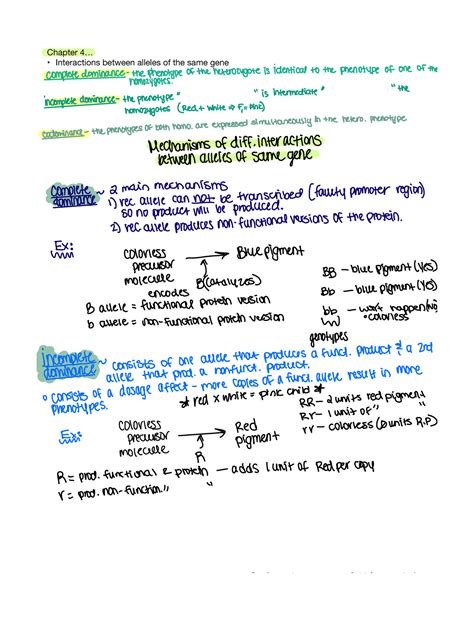 Chapter 4...
• Interactions between alleles of the same gene
complete dominance - the phenotype of the heterozygote is identical to the phenotype of one of the
homozygotes.
incomplete dominance - the phenotype " " is intermediate " " the
homozygotes (Red + White → F₁ = Pink)
codominance - the phenotypes of both homo. are expressed simultaneously in the hetero. phenotype
Mechanisms of diff. interactions
between alleles of same gene
Complete dominance ~ 2 main mechanisms
1) rec allele can not be transcribed (faulty promoter region)
so no product will be produced.
2) rec allele produces non-functional versions of the protein.
Ex:
colorless precursor molecule → Blue pigment
B (catalyzes)
encodes
B allele = functional protein version
b allele = non-functional protein version
BB - blue pigment (yes)
Bb - blue pigment (yes)
bb - won't happen (no)
• colorless
genotypes
Incomplete dominance ~ consists of one allele that produces a funct. product & a 2nd
allele that prod. a nonfunct. product.
• consists of a dosage affect - more copies of a funct. allele result in more
phenotypes.
* red x white = pink child *
Ex:
colorless precursor molecule → Red pigment
R
RR - 2 units red pigment
Rr - 1 unit of " "
rr - colorless (0 units R.P)
R = prod. functional protein - adds 1 unit of Red per copy
r = prod. non-function. " "